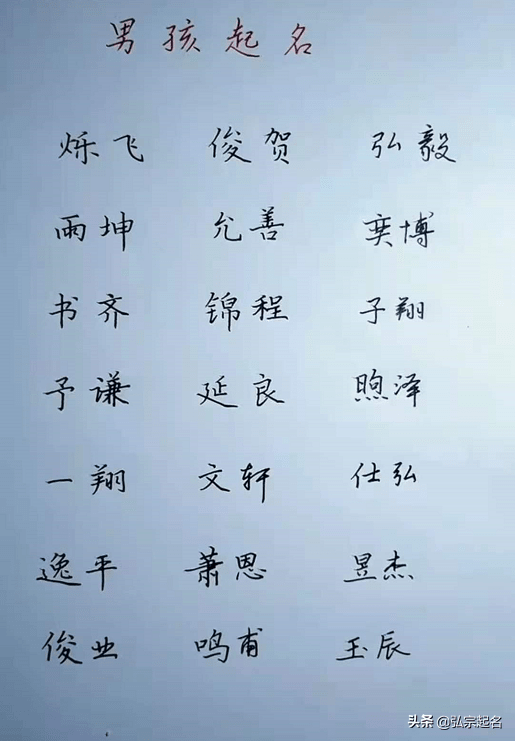 男孩起名
烁飞 俊贺 弘毅
雨坤 允善 奕博
书齐 锦程 子翔
予谦 延良 煦泽
一翔 文轩 仕弘
逸平 萧恩 昱杰
俊业 鸣甫 玉辰
头条 @弘宗起名